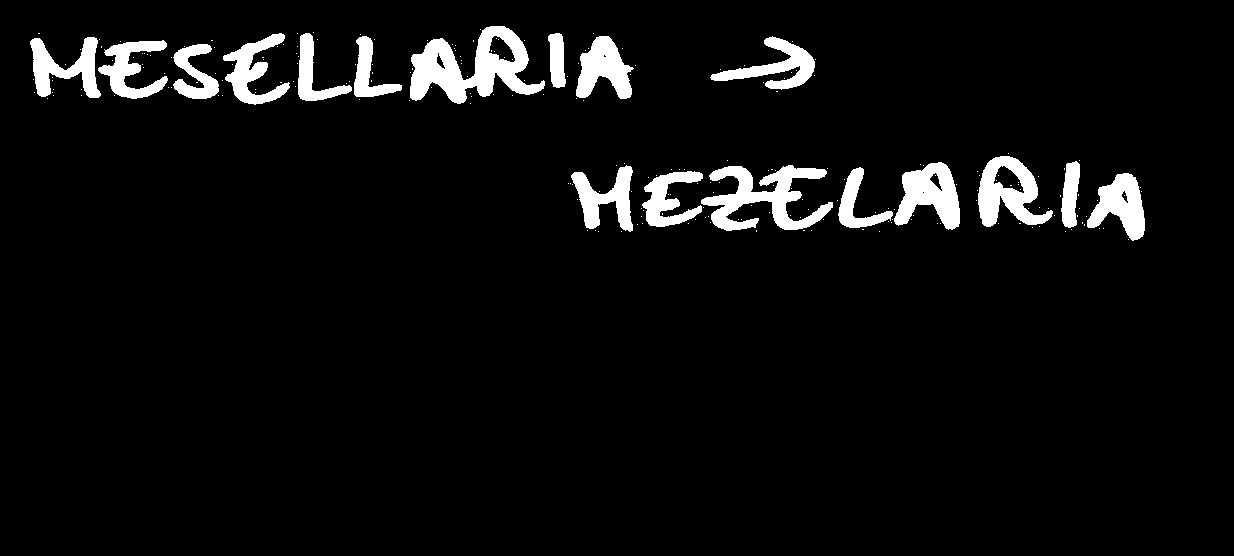 MESELLARIA →
MEZELARIA